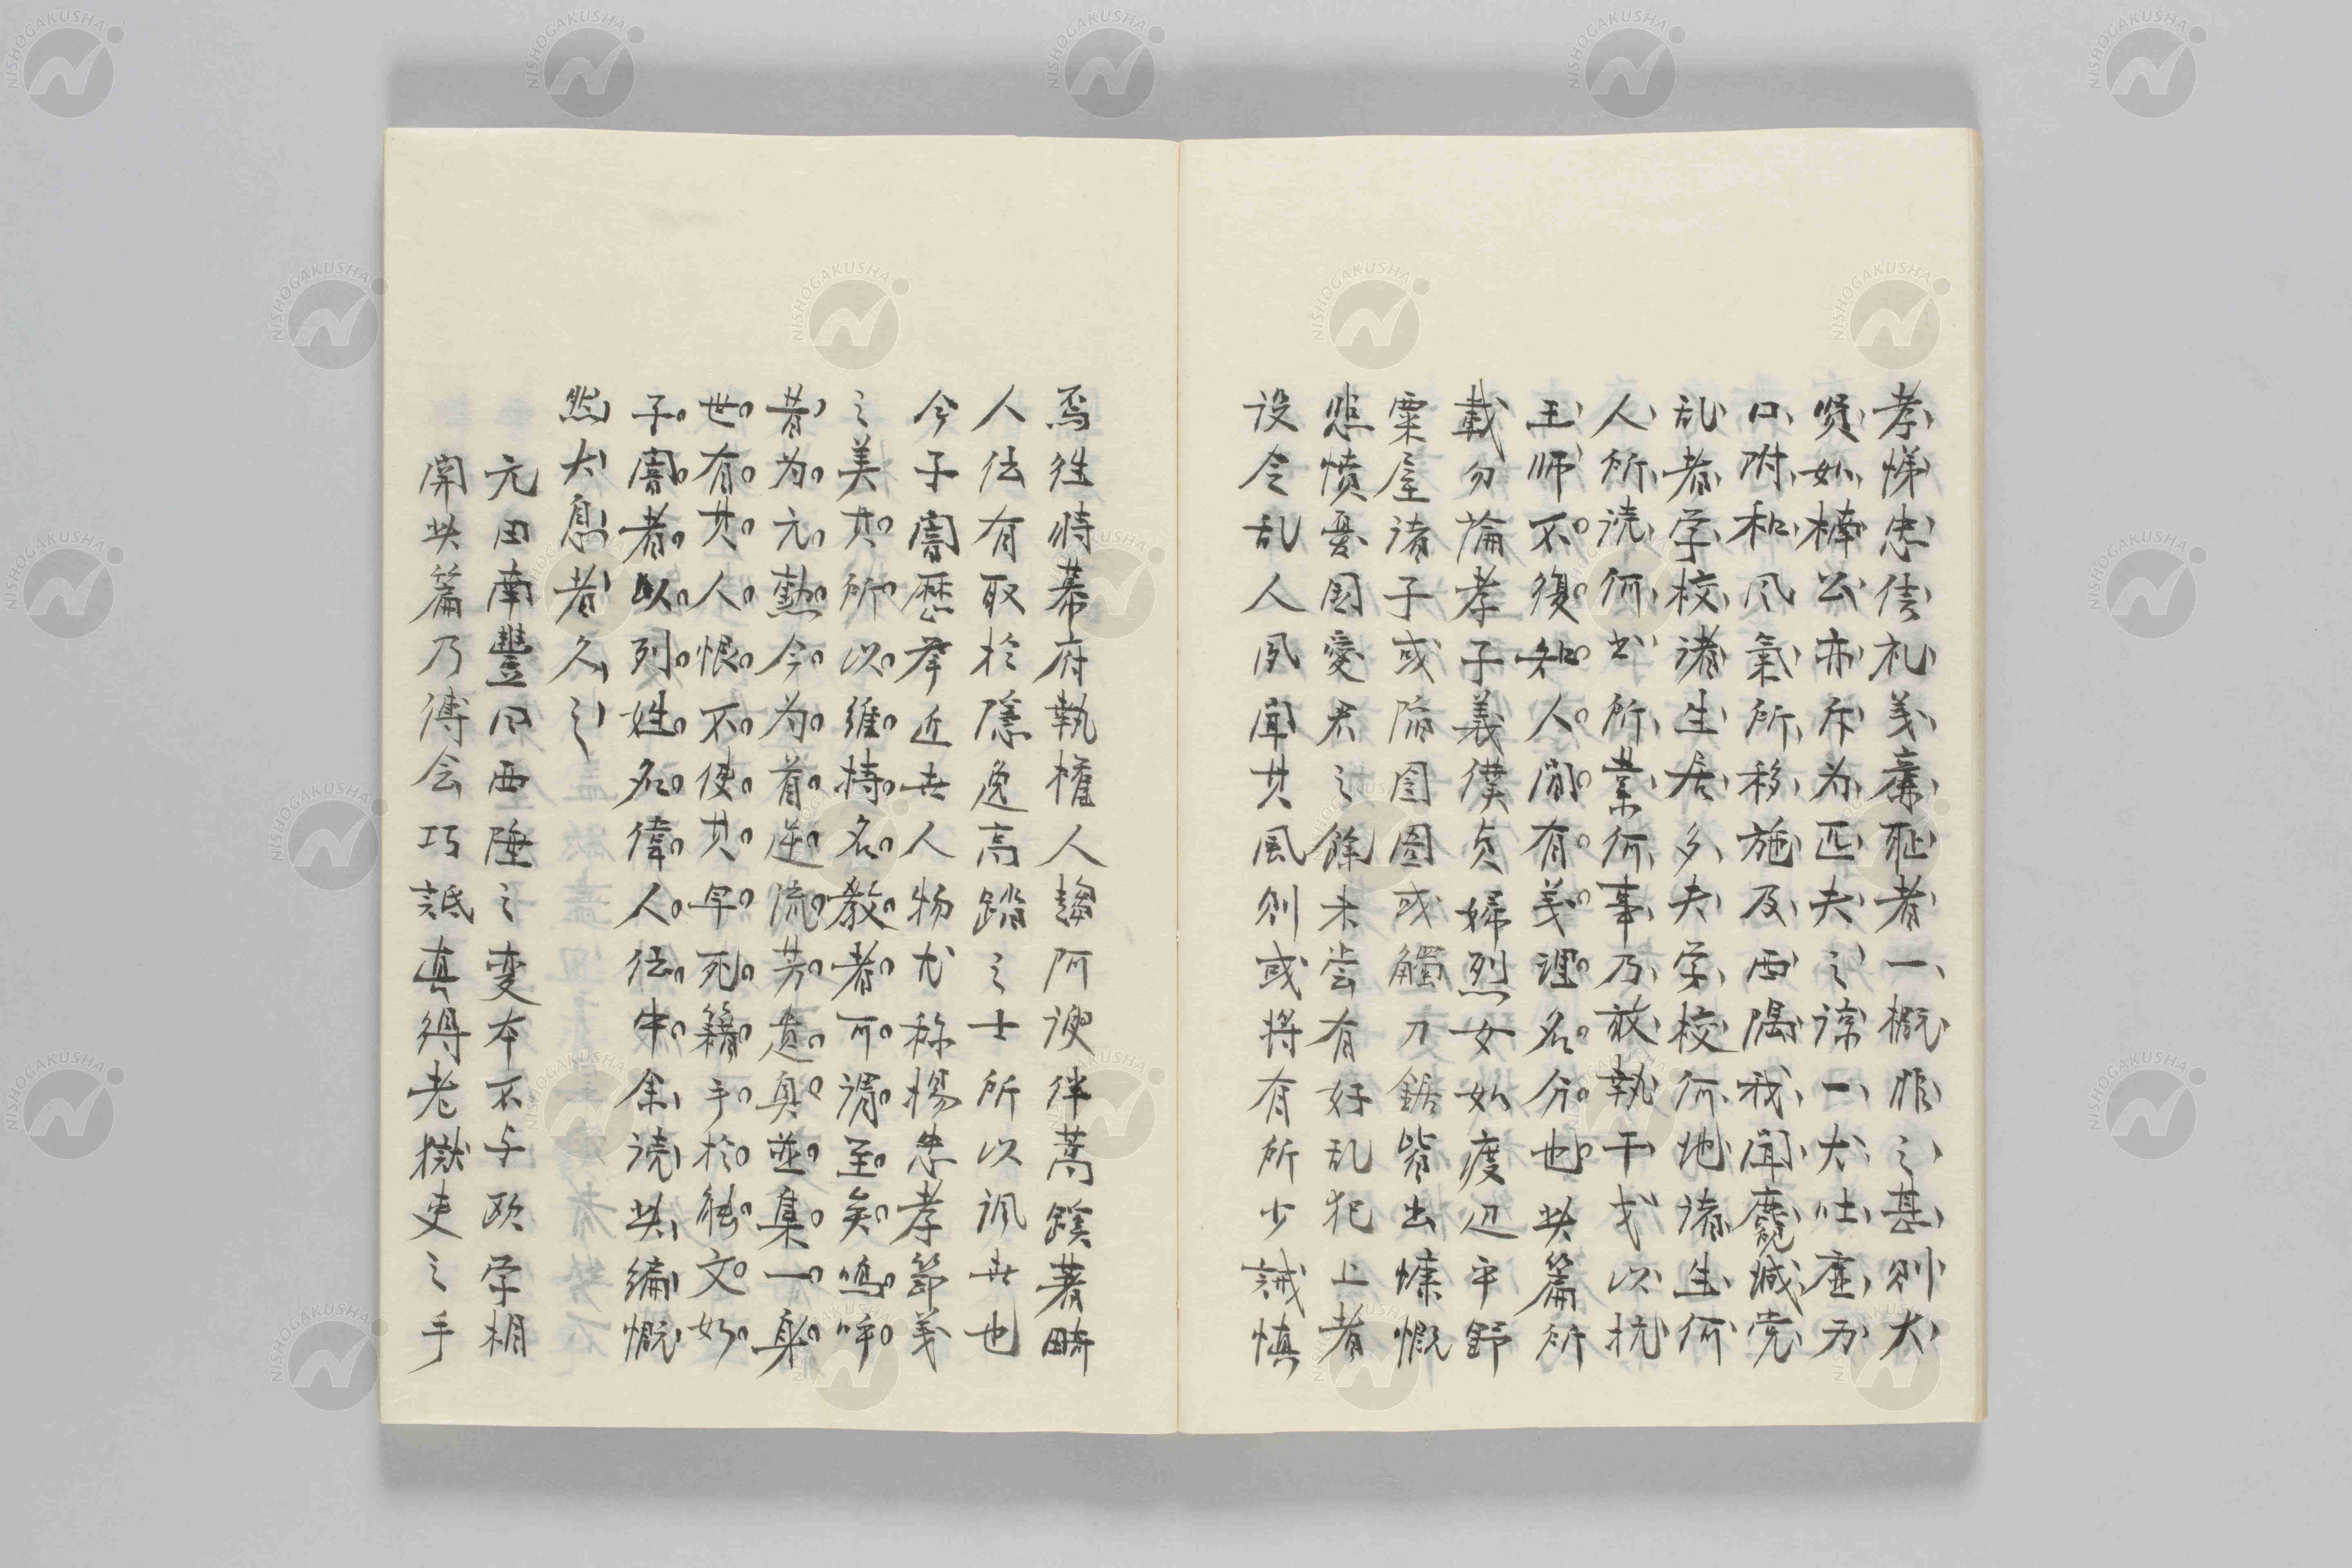 孝悌忠信礼義廉耻者一概非之甚則大
賢如楠公亦斥為匹夫之諒一犬吐虚万
口附和風氣所移施及西隅我聞麑城党
乱者学校諸生居多夫学校何地諸生何
人所読何書所業何事乃敢執干戈以抗
王師不復知人間有義理名分也此篇所
載勿論孝子義僕貞婦烈女如度辺平野
粟屋諸子或陥囹圄或觸刀鋸皆出慷慨
悲憤憂国愛君之餘未嘗有好乱犯上者
设令乱人夙聞其風則或將有所少誡慎
焉往時幕府執権人趨阿諛伴蒿蹊著畸
人伝有取於隱逸高踏之士所以諷世也
今子闇歴挙近世人物尤称揚忠孝節義
之美其所以維持名教者可謂至矣嗚呼
昔為元勲今為首逆流芳遺臭並集一身
世有其人恨不使其早死籍手於能文如
子闇者以列姓名偉人伝中余読此編慨
然大息者久之
元田南豐曰西陲之変本不与欧学相
関此篇乃傅会巧詆真得老獄吏之手